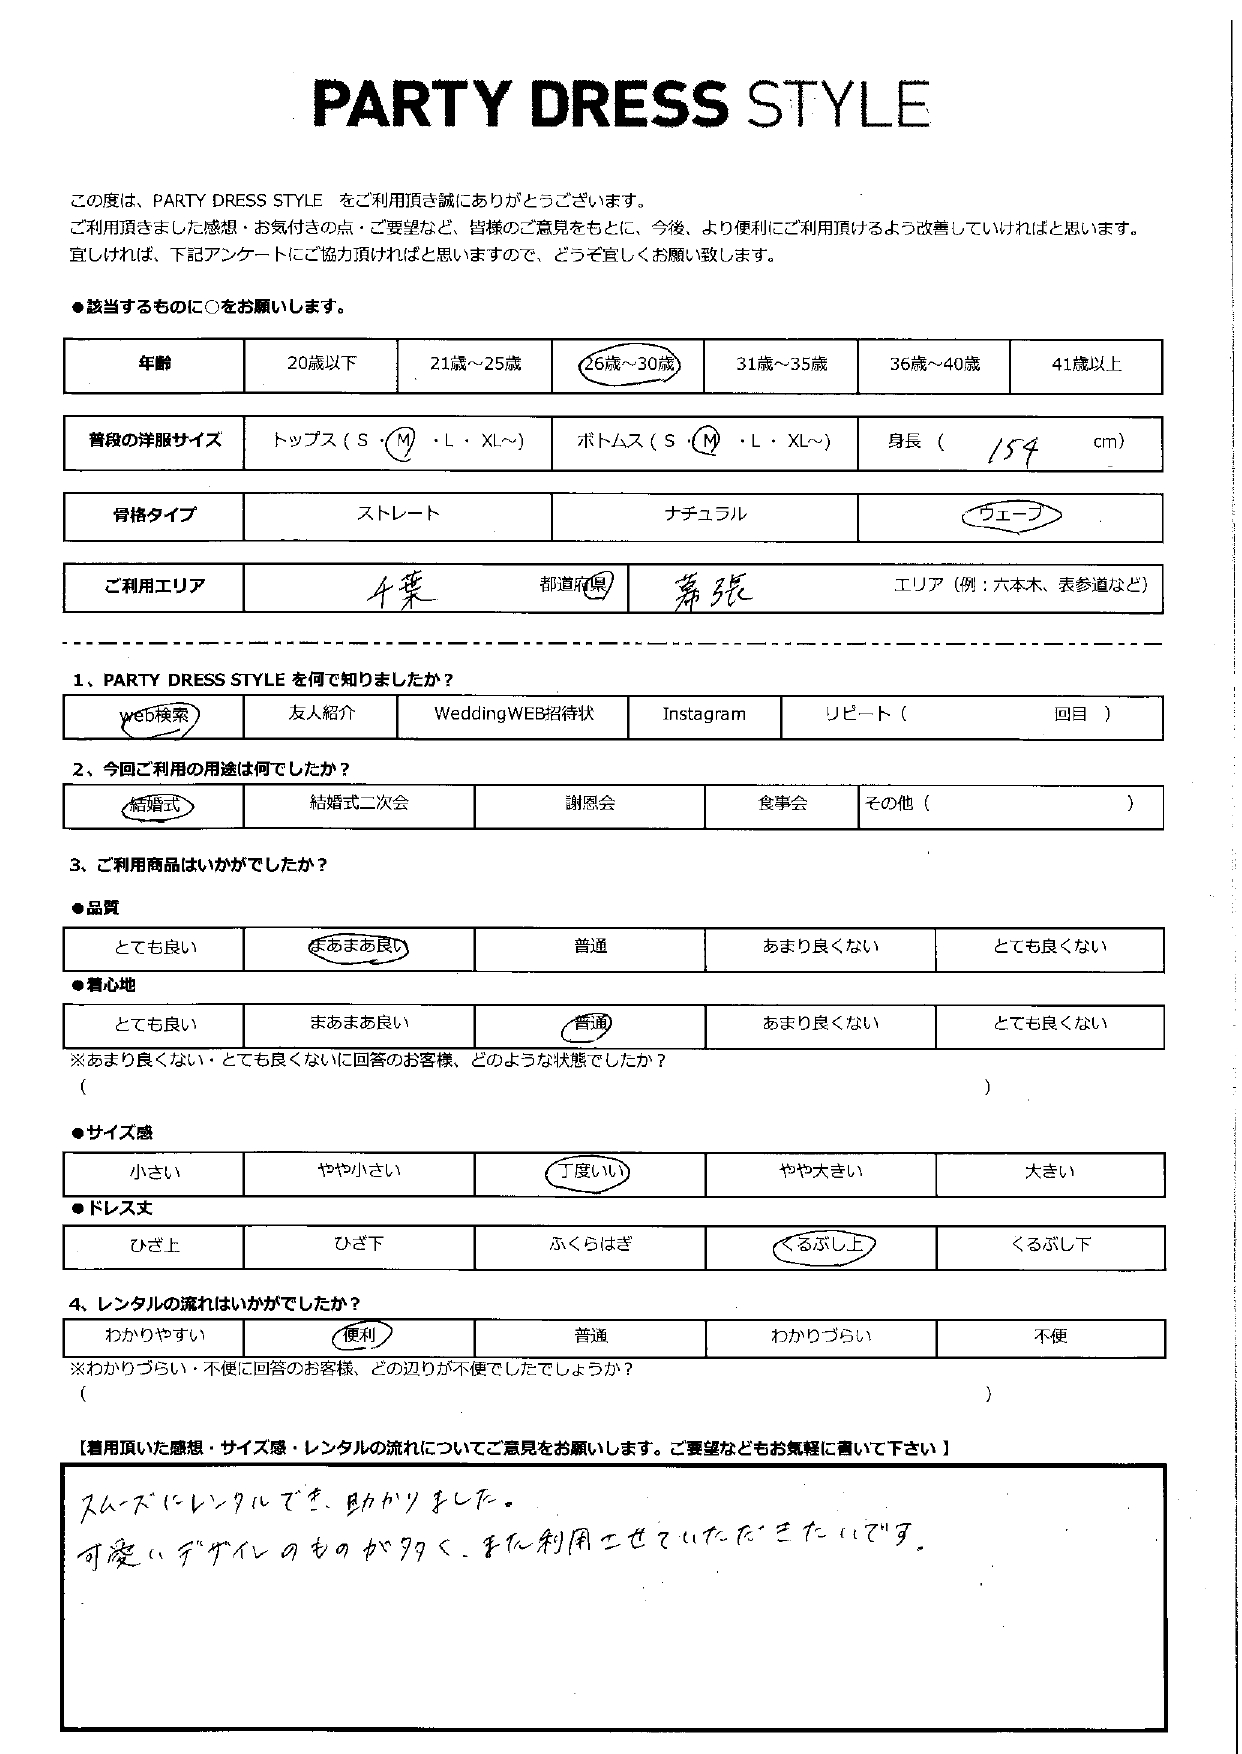 PARTY DRESS STYLE
この度は、PARTY DRESS STYLE をご利用頂き誠にありがとうございます。
ご利用頂きました感想・お気付きの点・ご要望など、皆様のご意見をもとに、今後、より便利にご利用頂けるよう改善していければと思います。
宜しければ、下記アンケートにご協力頂ければと思いますので、どうぞ宜しくお願い致します。
●該当するものに○をお願いします。
年齢 20歳以下 21歳～25歳 26歳～30歳 31歳～35歳 36歳～40歳 41歳以上
普段の洋服サイズ トップス ( S ・ M ・ L ・ XL～) ボトムス ( S ・ M ・ L ・ XL～) 身長 ( 154 cm)
骨格タイプ ストレート ナチュラル ウェーブ
ご利用エリア 千葉 都道府県 幕張 エリア（例：六本木、表参道など）
1、PARTY DRESS STYLE を何で知りましたか？
web検索 友人紹介 WeddingWEB招待状 Instagram リピート（ 回目 ）
2、今回ご利用の用途は何でしたか？
結婚式 結婚式二次会 謝恩会 食事会 その他（ ）
3、ご利用商品はいかがでしたか？
●品質
とても良い まあまあ良い 普通 あまり良くない とても良くない
●着心地
とても良い まあまあ良い 普通 あまり良くない とても良くない
※あまり良くない・とても良くないに回答のお客様、どのような状態でしたか？
（ ）
●サイズ感
小さい やや小さい 丁度いい やや大きい 大きい
●ドレス丈
ひざ上 ひざ下 ふくらはぎ くるぶし上 くるぶし下
4、レンタルの流れはいかがでしたか？
わかりやすい 便利 普通 わかりづらい 不便
※わかりづらい・不便に回答のお客様、どの辺りが不便でしたでしょうか？
（ ）
【着用頂いた感想・サイズ感・レンタルの流れについてご意見をお願いします。ご要望などもお気軽に書いて下さい 】
スムーズにレンタルでき、助かりました。
可愛いデザインのものが多く、また利用させていただきたいです。